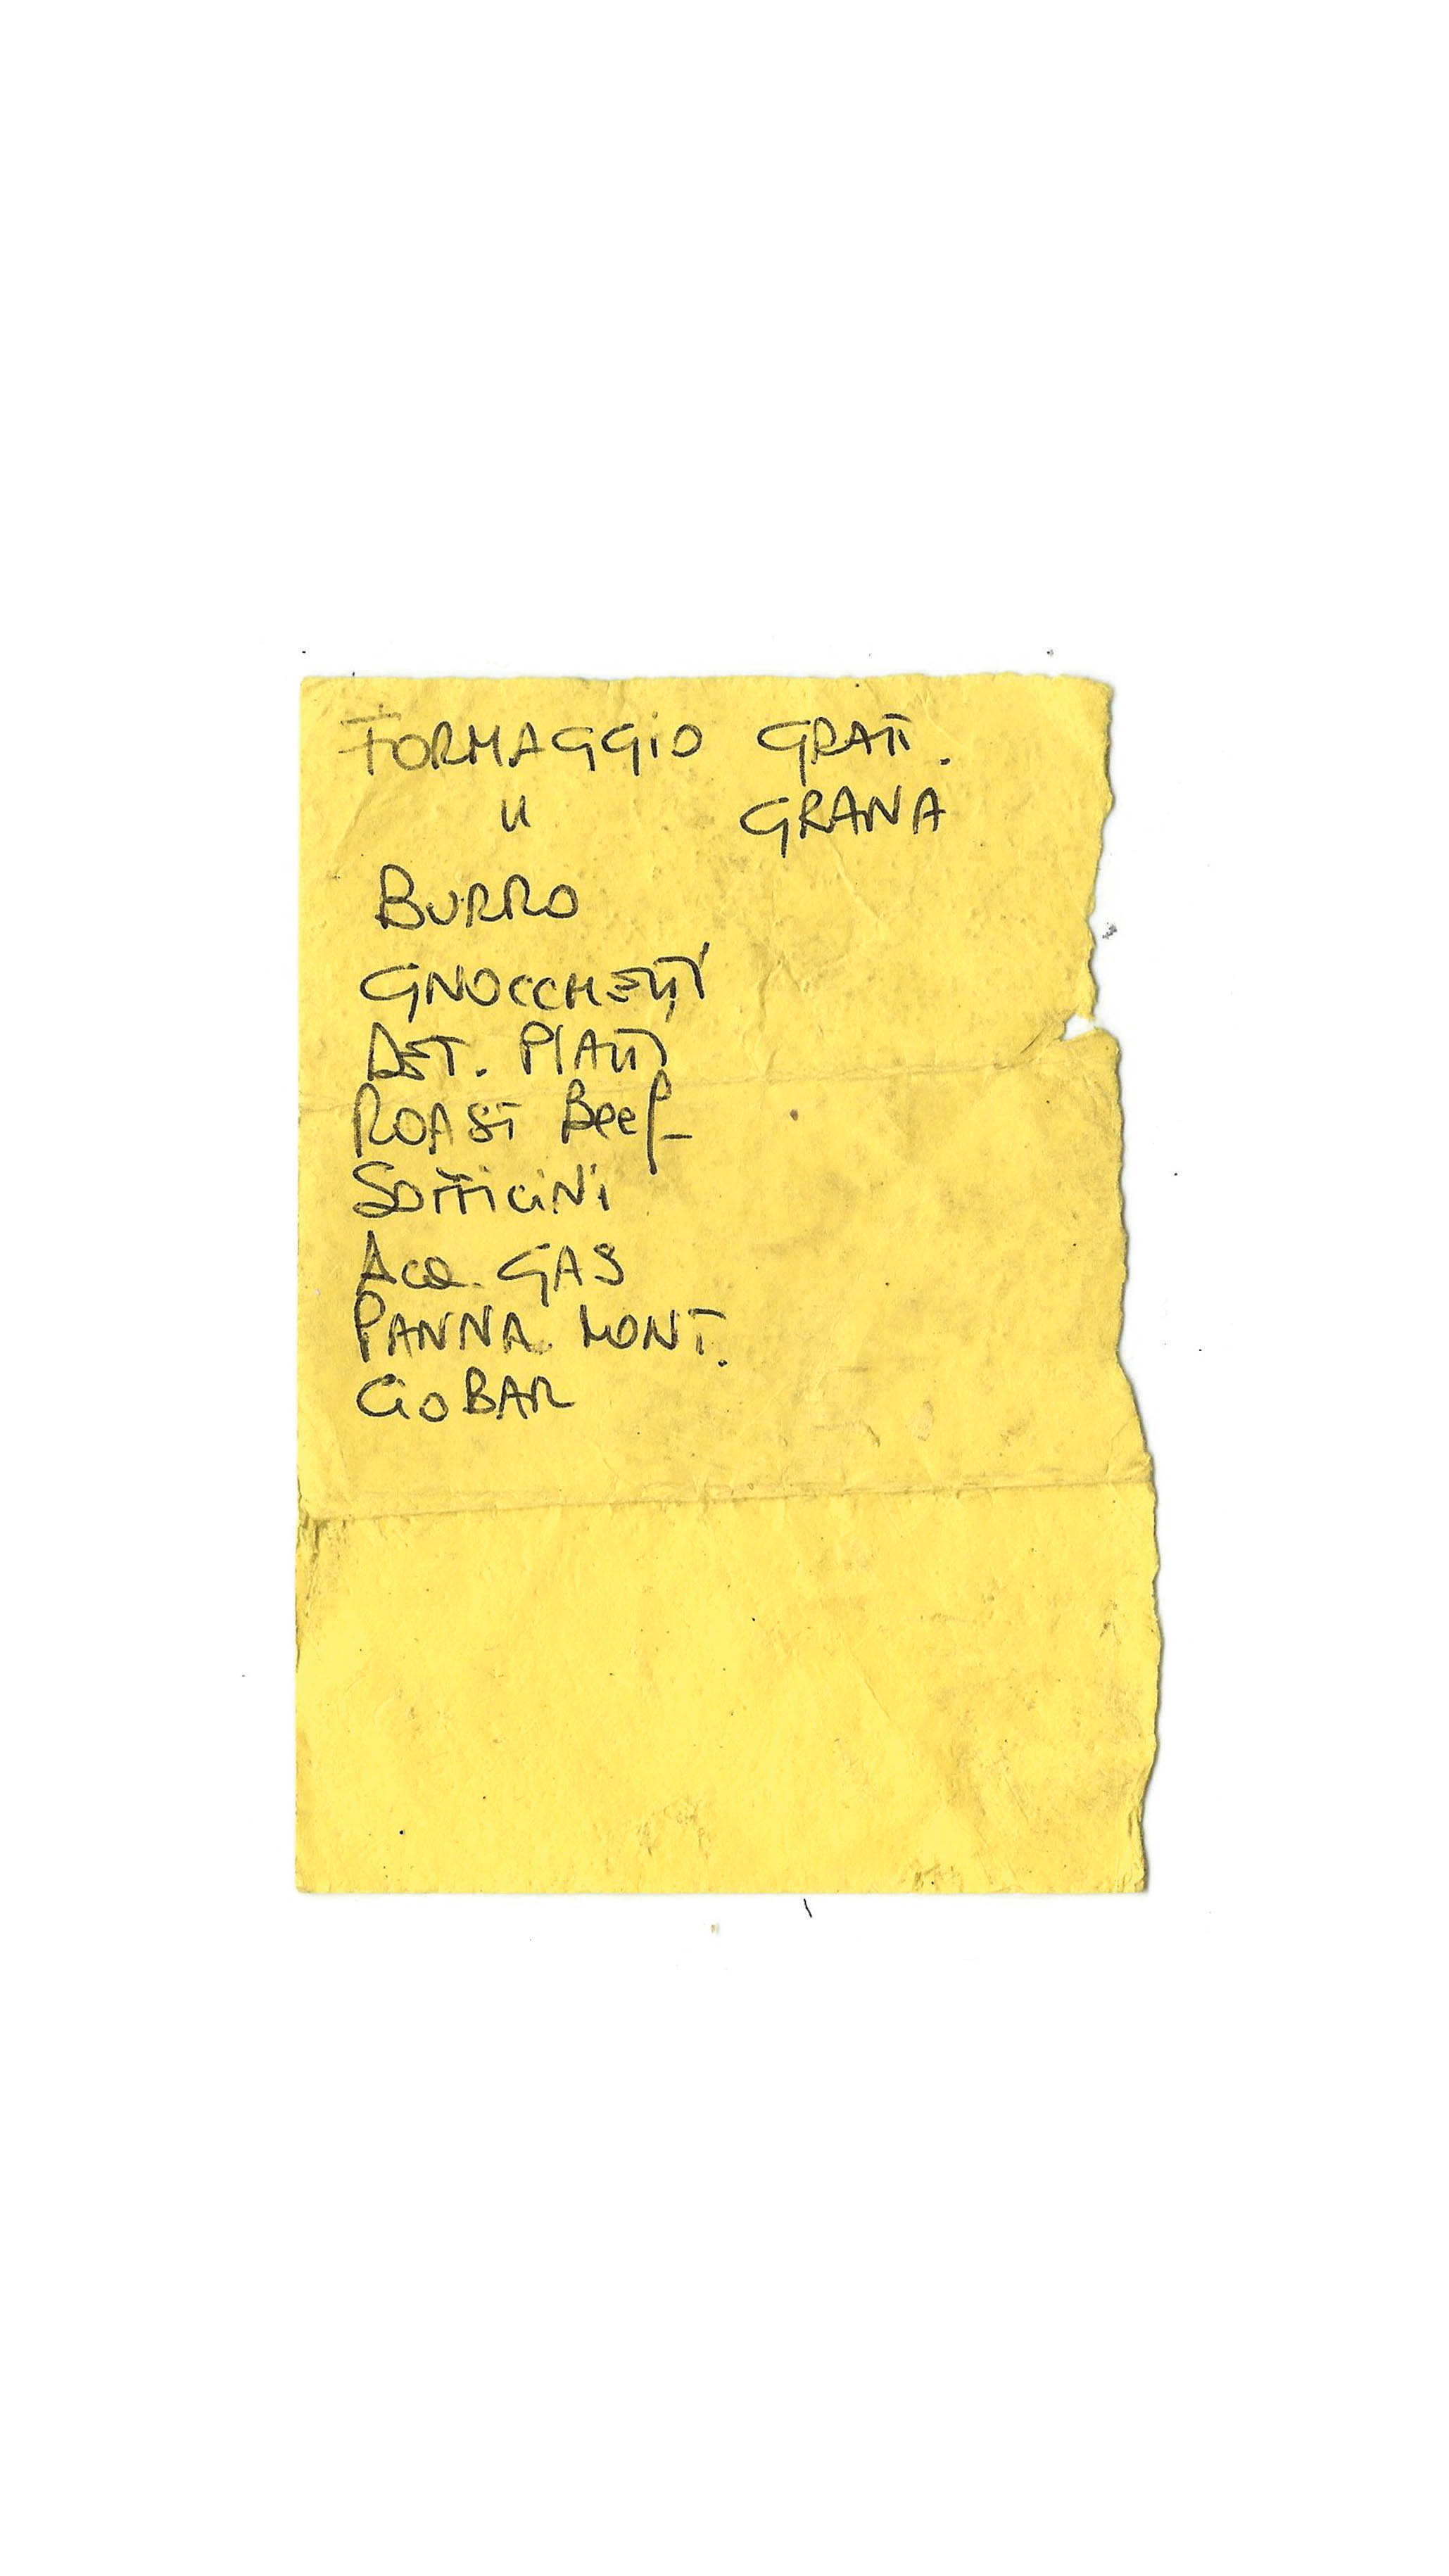 FORMAGGIO GRATT.
" GRANA
BURRO
GNOCCHETTI
DET. PIATTI
ROAST Beef
SOFFICINI
Acq. GAS
PANNA MONT.
CIOBAR